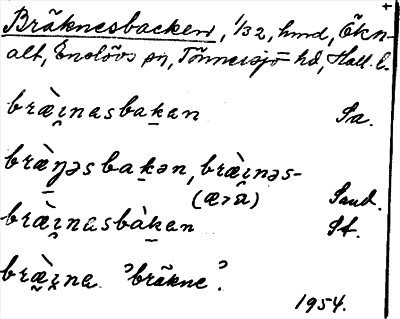 +
Bräknesbacken, 1/32, hmd, Ökn-
alt, Enslövs sn, Tönnersjö hd, Hall. l.
bræ̀ı̯nasbak̠an Sa.
bræ̀ŋəsbak̠ən, bræ̀ı̯nəs-
(æɂa) Sand.
bræ̀ı̯nasbàk̠an St.
bræ̀ı̯na "bräkne".
1954.